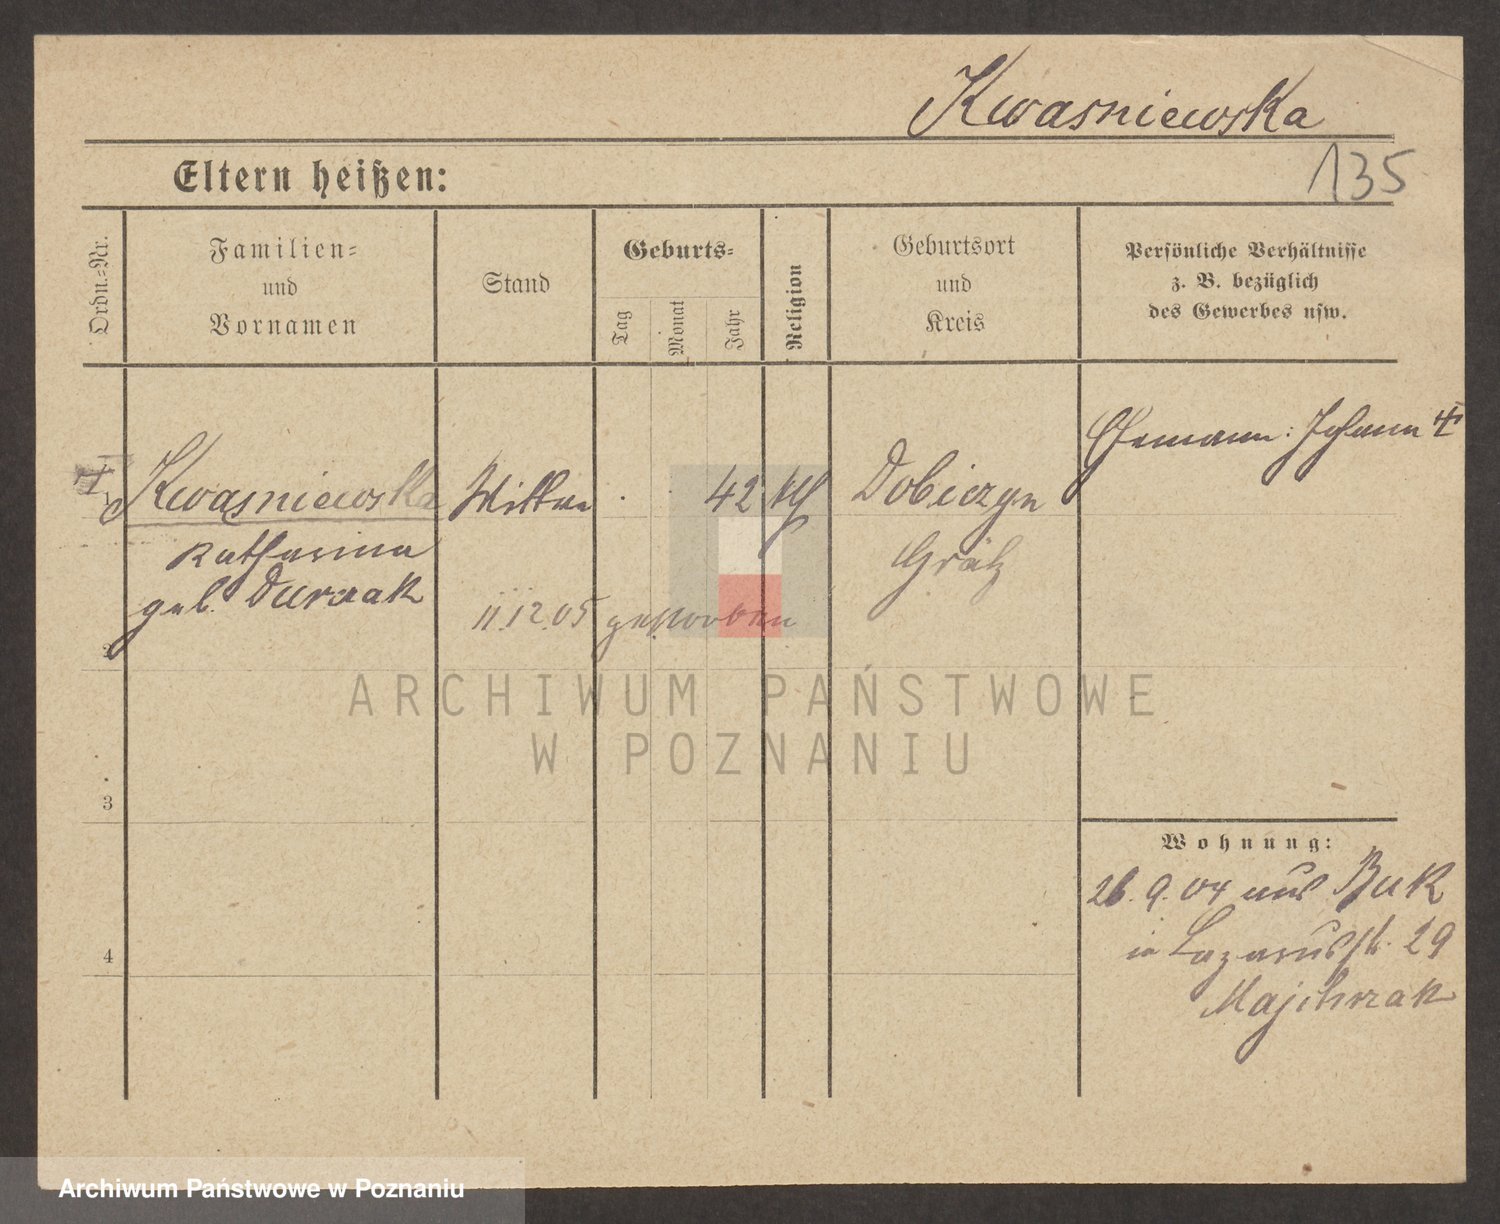 Kwasniewska
135
Eltern heißen:
Ordn.-Nr.
Familien-
und
Vornamen
Stand
Geburts-
Tag
Monat
Jahr
Religion
Geburtsort
und
Kreis
Persönliche Verhältnisse
z. B. bezüglich
des Gewerbes usw.
Ehemann: Johann
Kwasniewska Wittwe 42 Dobiezyn
Katharina Grätz
geb. Durczak
11.12.05 gestorben
2
ARCHIWUM PAŃSTWOWE
W POZNANIU
3
Wohnung:
26.9.04 aus Buk
in Lazarusstr. 29
Majchrzak
4
Archiwum Państwowe w Poznaniu